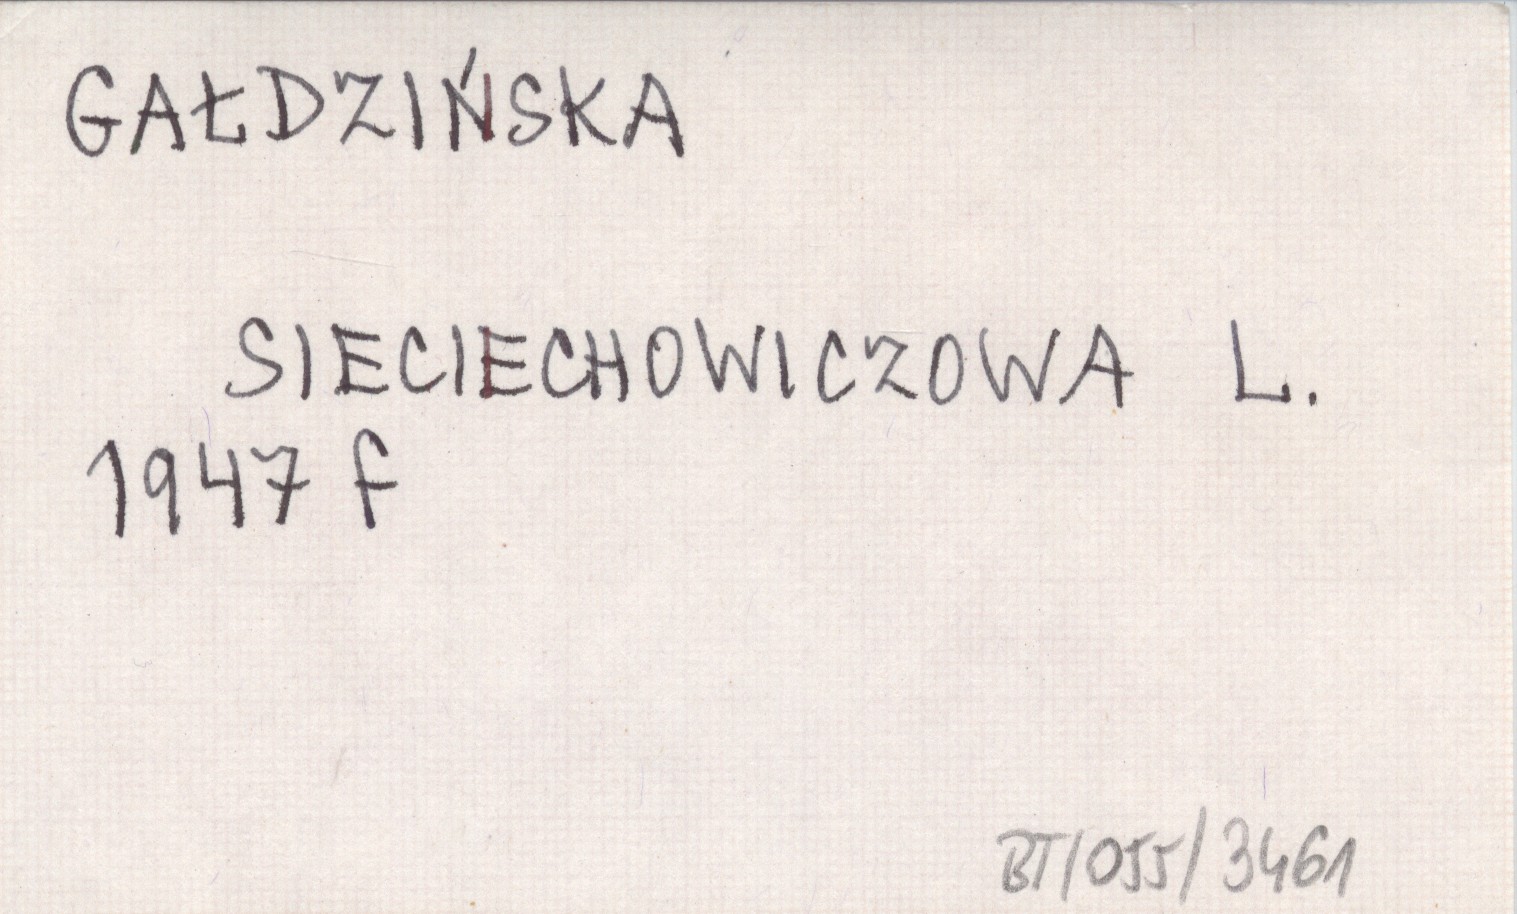 GAŁDZIŃSKA
SIECIECHOWICZOWA L.
1947 f
BT/055/3461